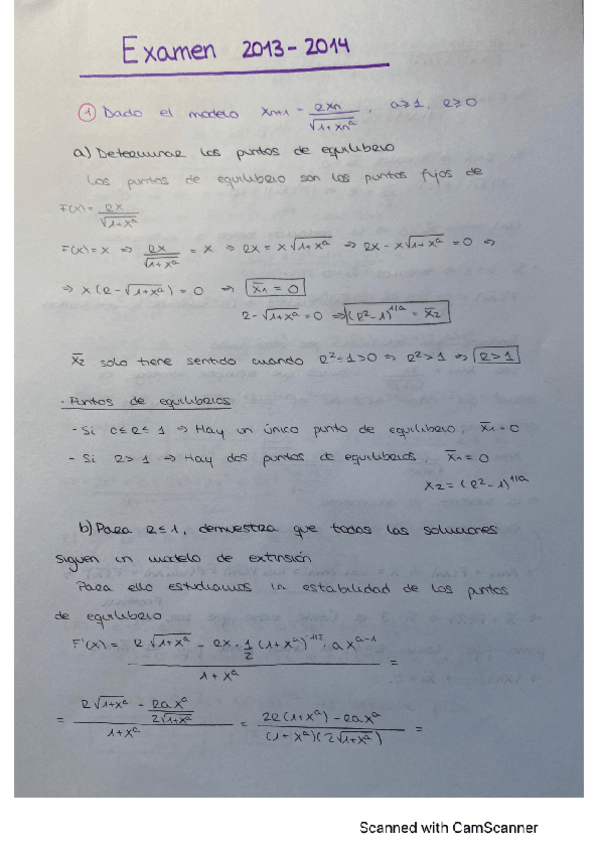 Examen 2013-2014
① Dado el modelo Xn+1 = RXn/√(1+Xn^a), a≥1, R≥0
a) Determinar los puntos de equilibrio
Los puntos de equilibrio son los puntos fijos de
F(x) = Rx/√(1+x^a)
F(x)=x ⇒ Rx/√(1+x^a) = x ⇒ Rx = x√(1+x^a) ⇒ Rx - x√(1+x^a) = 0 ⇒
⇒ x(R-√(1+x^a)) = 0 ⇒ x̄1 = 0
R-√(1+x^a) = 0 ⇒ (R²-1)^1/a = x̄2
x̄2 solo tiene sentido cuando R²-1>0 ⇒ R²>1 ⇒ R>1
· Puntos de equilibrios
- Si 0≤R≤1 ⇒ Hay un único punto de equilibrio, x̄1=0
- Si R>1 ⇒ Hay dos puntos de equilibrios, x̄1=0
x2=(R²-1)^1/a
b) Para R≤1, demuestra que todas las soluciones
siguen un modelo de extinsión
Para ello estudiamos la estabilidad de los puntos
de equilibrio
F'(x) = (R√(1+x^a) - Rx·1/2(1+x^a)^1/2·ax^a-1)/(1+x^a) =
= (R√(1+x^a) - Rax^a/(2√(1+x^a)))/(1+x^a) = (2R(1+x^a)-Rax^a)/((1+x^a)(2√(1+x^a))) =
Scanned with CamScanner